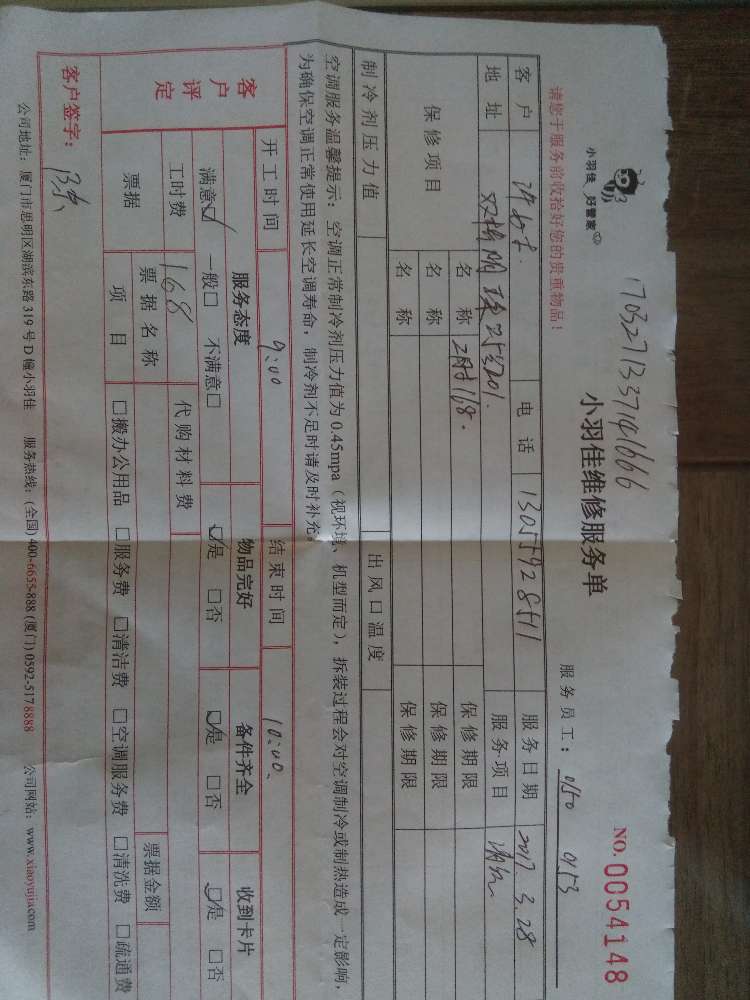 小羽佳 好管家
17032713371421666
小羽佳维修服务单
NO.0054148
请您于服务前收拾好您的贵重物品！
服务员工： 0150 0153
客户 电话 13055928511 服务日期 2017.3.28
地址 双梅明珠 服务项目
保修项目 名称 保修期限
名称 保修期限
名称 保修期限
制冷剂压力值 出风口温度
空调服务温馨提示：空调正常制冷剂压力值为0.45mpa（视环境、机型而定），拆装过程会对空调制冷或制热造成一定影响，
为确保空调正常使用延长空调寿命，制冷剂不足时请及时补充。
开工时间 9:00 结束时间 10:00
客户评定 服务态度 物品完好 备件齐全 收到卡片
满意☑ 一般□ 不满意□ ☑是 □否 ☑是 □否 ☑是 □否
工时费 168 代购材料费
票据 票据名称 票据金额
项目 □搬办公用品 □服务费 □清洁费 □空调服务费 □清洗费 □疏通费
客户签字：
公司地址：厦门市思明区湖滨东路319号D幢小羽佳 服务热线：(全国)400-6655-888 (厦门)0592-5178888 公司网站：www.xiaoyujia.com